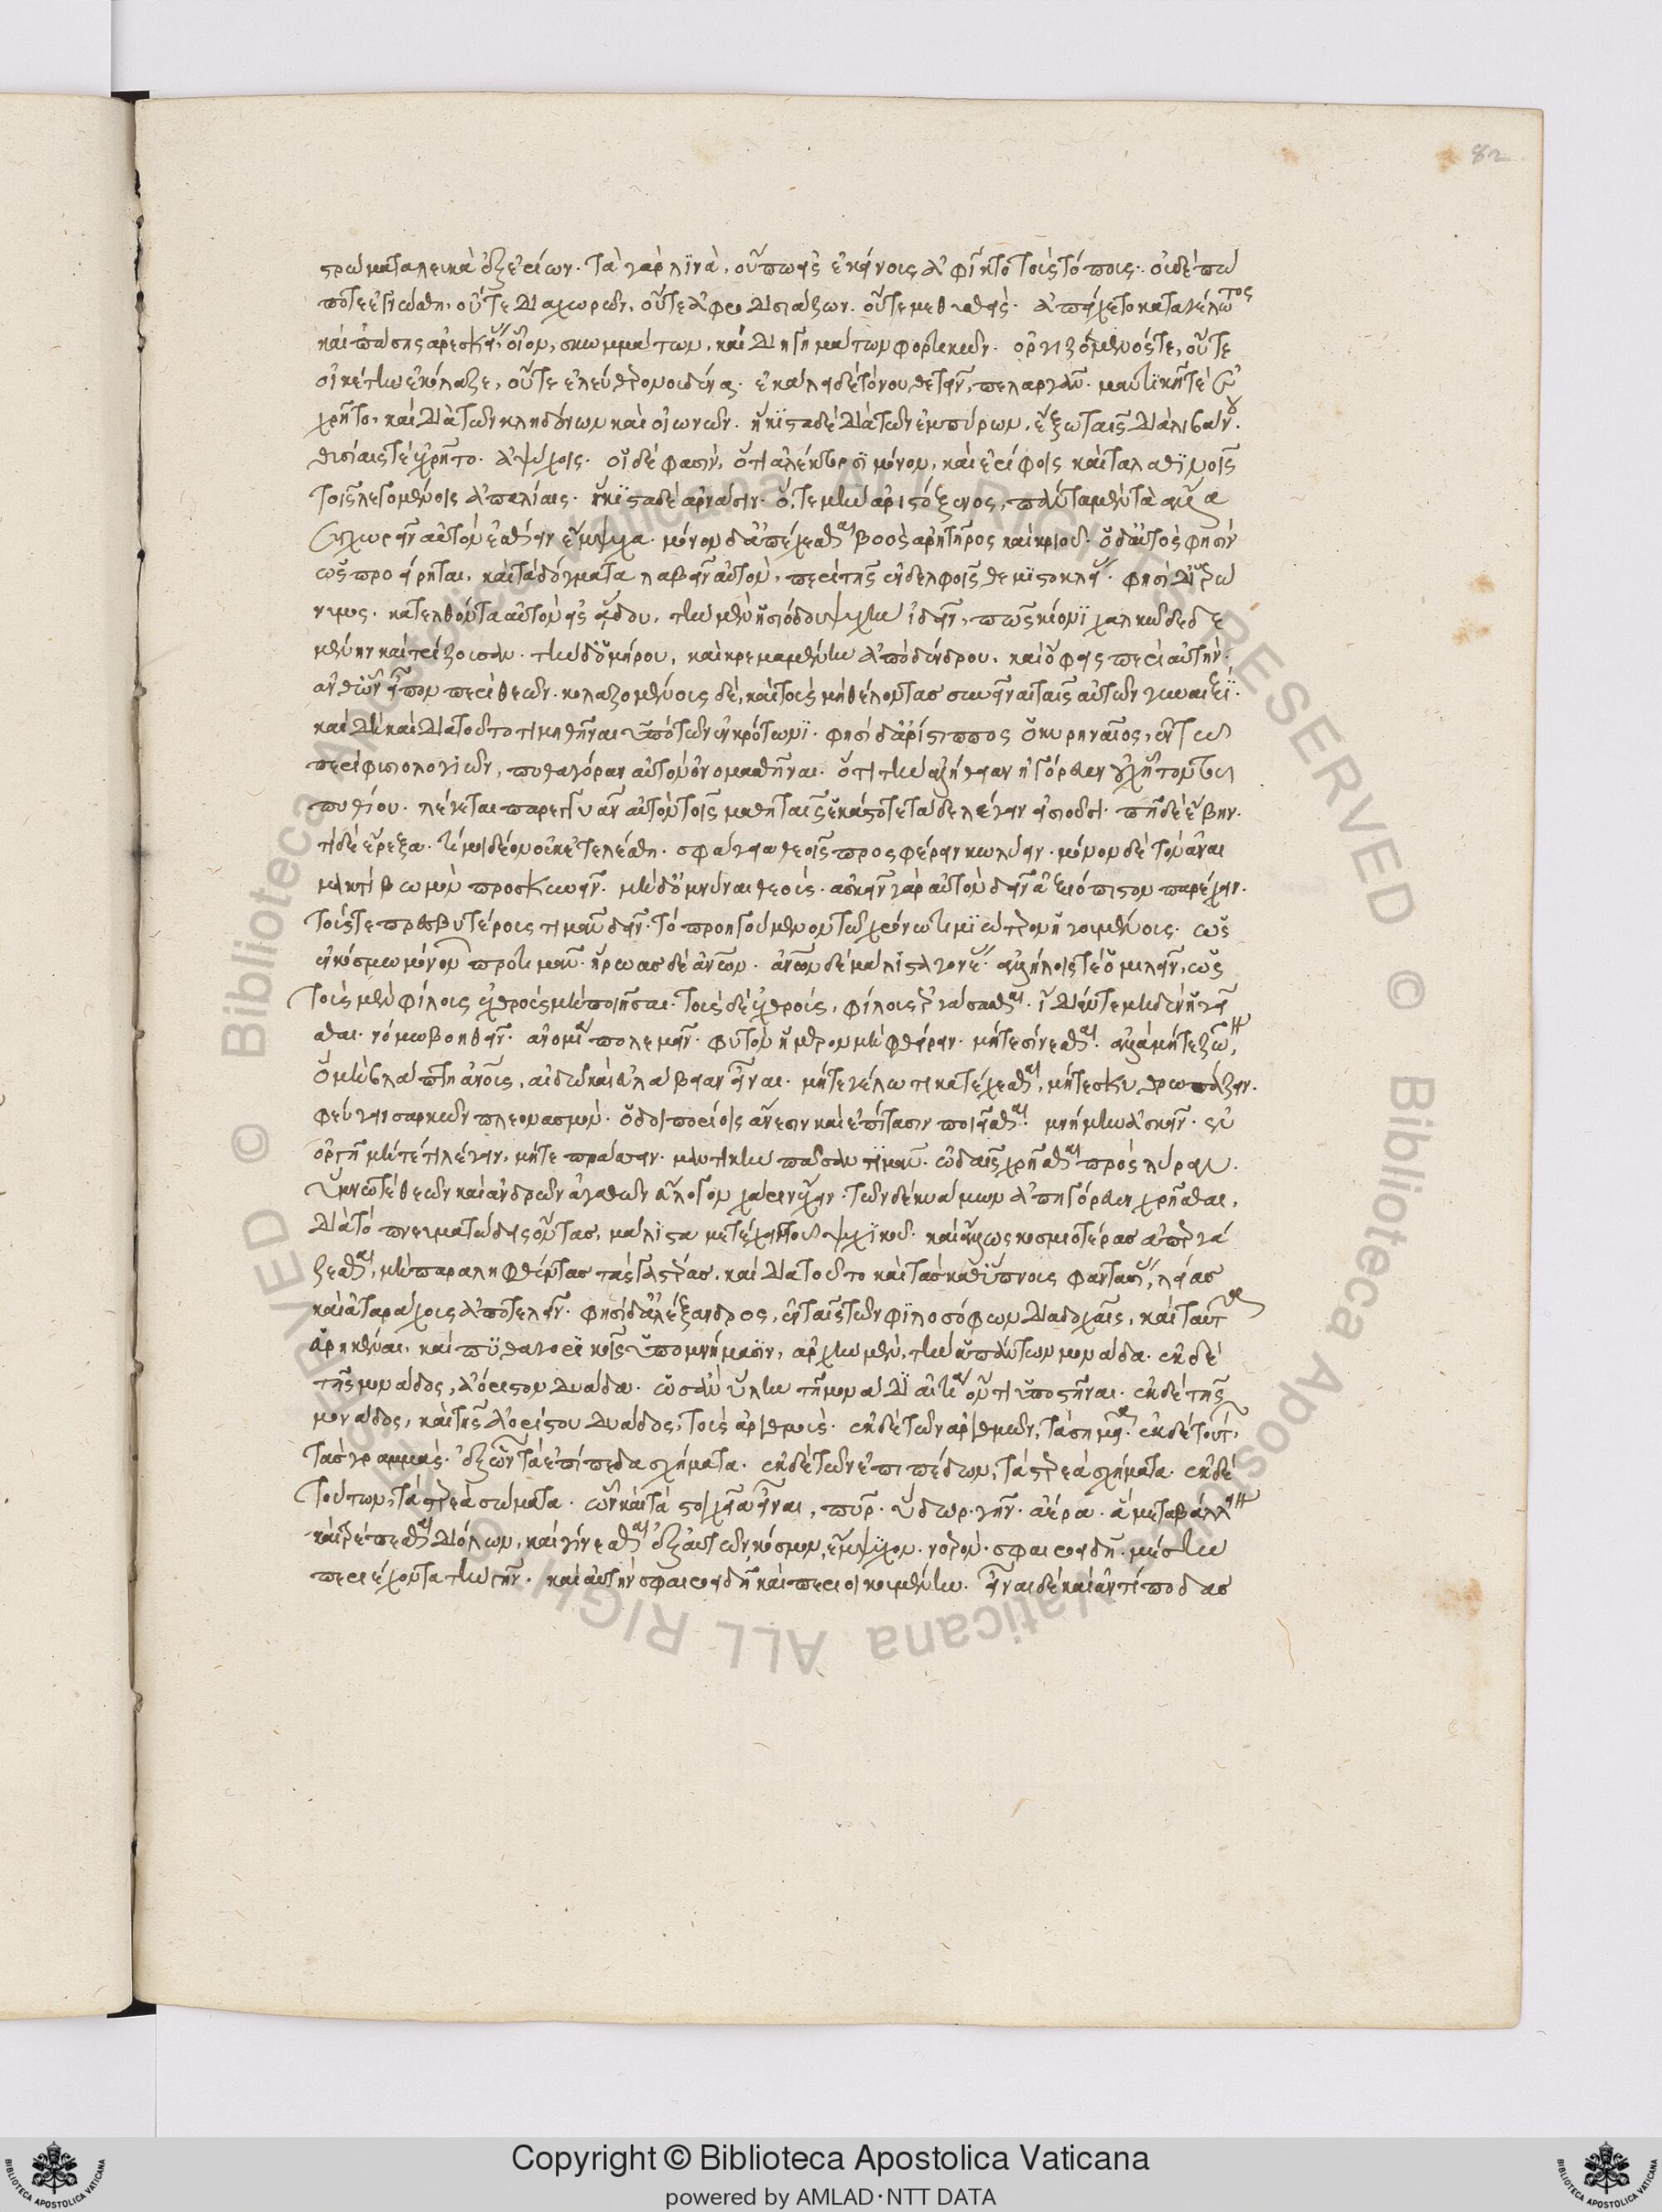 82
στρώματα λευκὰ ἐξ ἐρίων. τὰ γὰρ λινὰ, οὔπω εἰς ἐκείνοις ἀφίκτο τοῖς τόποις. οὐδέ πω
ποτε ἐγνώσθη, οὔτε διαχωρῶν, οὔτε ἀφροδισιάζων. οὔτε μεθυσθείς. ἀπείχετο καταγέλωτος
καὶ πάσης ἀρεσκείας, οἷον, σκωμμάτων, καὶ διηγημάτων φορτικῶν. ὀργιζόμενός τε, οὔτε
οἰκέτην ἐκόλαζε, οὔτε ἐλεύθερον οὐδένα. ἐκάλει δὲ τὸ νουθετεῖν, πελαργᾶν. μαντικῇ τέ ἐ
χρῆτο, καὶ διὰ τῶν κληδόνων καὶ οἰωνῶν. ἥκιστα δὲ διὰ τῶν ἐμπύρων, ἔξω ταῖς διὰ λιβάνου.
θυσίαις τὲ ἐχρῆτο. ἀψύχοις. οἱ δέ φασιν, ὅτι ἀλέκτορσι μόνον, καὶ ἐρίφοις καὶ γαλαθηνοῖς
τοῖς λεγομένοις ἀπαλίαις. ἥκιστα δὲ ἀρνάσιν. ὅ, τε μὴν ἀριστόξενος, πάντα μὲν τὰ ἄλλα
συγχωρεῖν αὐτὸν ἐσθίειν ἔμψυχα. μόνον δ' ἀπέχεσθαι βοὸς ἀρητῆρος καὶ κριοῦ. ὁ δ' αὐτὸς φησὶν
ὡς προείρηται, καὶ τὰ δόγματα λαβεῖν αὐτὸν, περὶ τῆς ἐν δελφοῖς θεμιστοκλείας. φησὶ δ' ἱερώ
νυμος. κατελθόντα αὐτὸν εἰς ᾅδου, τὴν μὲν ἡσιόδου ψυχὴν ἰδεῖν, πρὸς κίονι χαλκῷ δεδε
μένην καὶ τρίζουσαν. τὴν δ' ὁμήρου, καὶ κρεμαμένην ἀπὸ δένδρου. καὶ ὄφεις περὶ αὐτὴν.
ἀνθ' ὧν εἶπον περὶ θεῶν. κολαζομένους δὲ, καὶ τοὺς μὴ θέλοντας συνεῖναι ταῖς αὐτῶν γυναιξί.
καὶ δὴ καὶ διὰ τοῦτο τιμηθῆναι ὑπὸ τῶν ἐν κρότωνι. φησὶ δ' ἀρίστιππος ὁ κυρηναῖος, ἐν τῷ
περὶ φυσιολογιῶν, πυθαγόραν αὐτὸν ὀνομασθῆναι. ὅτι τὴν ἀλήθειαν ἠγόρευεν οὐχ ἧττον τοῦ
πυθίου. λέγεται παρεγγυᾶν αὐτὸν τοῖς μαθηταῖς ἑκάστοτε τάδε λέγειν εἰσιοῦσι. πῆ δὲ ἔβην.
τί δὲ ἔρεξα. τί μοι δέον οὐκ ἐτελέσθη. σφάγια θεοῖς προσφέρειν κωλύειν. μόνον δὲ τὸν ἀναί
μακτον βωμὸν προσκυνεῖν. μηδ' ὀμνύναι θεοὺς. ἀσκεῖν γὰρ αὐτὸν δεῖν ἀξιόπιστον παρέχειν.
τούς τε πρεσβυτέρους τιμᾶν δεῖν. τὸ προηγούμενον τῷ χρόνῳ τιμιώτερον ἡγουμένους. ὡς
ἐν κόσμῳ μόνον προτιμᾶν. ἥρωας δὲ ἀνθρώπων. ἀνθρώπων δὲ μάλιστα γονεῖς. ἀλλήλοις τὲ ὁμιλεῖν, ὡς
τοὺς μὲν φίλους ἐχθροὺς μὴ ποιῆσαι. τοὺς δὲ ἐχθροὺς, φίλους ἐργάσασθαι. ἴδιόν τε μηδὲν ἡγεῖ
σθαι. νόμῳ βοηθεῖν. ἀνομίᾳ πολεμεῖν. φυτὸν ἥμερον μὴ φθείρειν. μήτε σίνεσθαι. ἀλλὰ μήτε ζῷον,
ὃ μὴ βλάπτῃ ἀνθρώπους, αἰδῶ καὶ εὐλάβειαν εἶναι. μήτε γέλωτι κατέχεσθαι, μήτε σκυθρωπάζειν.
φεύγειν σαρκῶν πλεονασμόν. ὁδοιπορίοις ἄνεσιν καὶ ἐπίτασιν ποιεῖσθαι. μνήμην ἀσκεῖν. ἐν
ὀργῇ μήτέ τι λέγειν, μήτε πράσσειν. μαντικὴν πᾶσαν τιμᾶν. ᾠδαῖς χρῆσθαι πρὸς λύραν.
ὕμνῳ τὲ θεῶν καὶ ἀνδρῶν ἀγαθῶν εὔλογον χάριν ἔχειν. τῶν δὲ κυάμων ἀπηγόρευεν χρῆσθαι,
διὰ τὸ πνευματώδεις ὄντας, μάλιστα μετέχειν τοῦ ψυχικοῦ. καὶ ἄλλως κοσμιοτέρας ἀπεργά
ζεσθαι, μὴ παραληφθέντας τὰς γαστέρας. καὶ διὰ τοῦτο καὶ τὰς καθ' ὕπνους φαντασίας, λείας
καὶ ἀταράχους ἀποτελεῖν. φησὶ δ' ἀλέξανδρος, ἐν ταῖς τῶν φιλοσόφων διαδοχαῖς, καὶ ταῦτα
εὑρηκέναι, καὶ πυθαγορικοῖς ὑπομνήμασιν, ἀρχὴν μὲν, τῶν ἁπάντων μονάδα. ἐκ δὲ
τῆς μονάδος, ἀόριστον δυάδα. ὡς ἂν ὕλην τῇ μονάδι αἰτίῳ ὄντι ὑποστῆναι. ἐκ δὲ τῆς
μονάδος, καὶ τῆς ἀορίστου δυάδος, τοὺς ἀριθμοὺς. ἐκ δὲ τῶν ἀριθμῶν, τὰ σημεῖα. ἐκ δὲ τούτων,
τὰς γραμμὰς. ἐξ ὧν τὰ ἐπίπεδα σχήματα. ἐκ δὲ τῶν ἐπιπέδων, τὰ στερεὰ σχήματα. ἐκ δὲ
τούτων, τὰ στερεὰ σώματα. ὧν καὶ τὰ στοιχεῖα εἶναι, πῦρ. ὕδωρ. γῆν. ἀέρα. ἃ μεταβάλλειν
καὶ τρέπεσθαι δι' ὅλων, καὶ γίνεσθαι ἐξ αὐτῶν, κόσμον, ἔμψυχον. νοερὸν. σφαιροειδῆ. μέσην
περιέχοντα τὴν γῆν. καὶ αὐτὴν σφαιροειδῆ καὶ περιοικουμένην. εἶναι δὲ καὶ ἀντίποδας
Copyright © Biblioteca Apostolica Vaticana
powered by AMLAD·NTT DATA